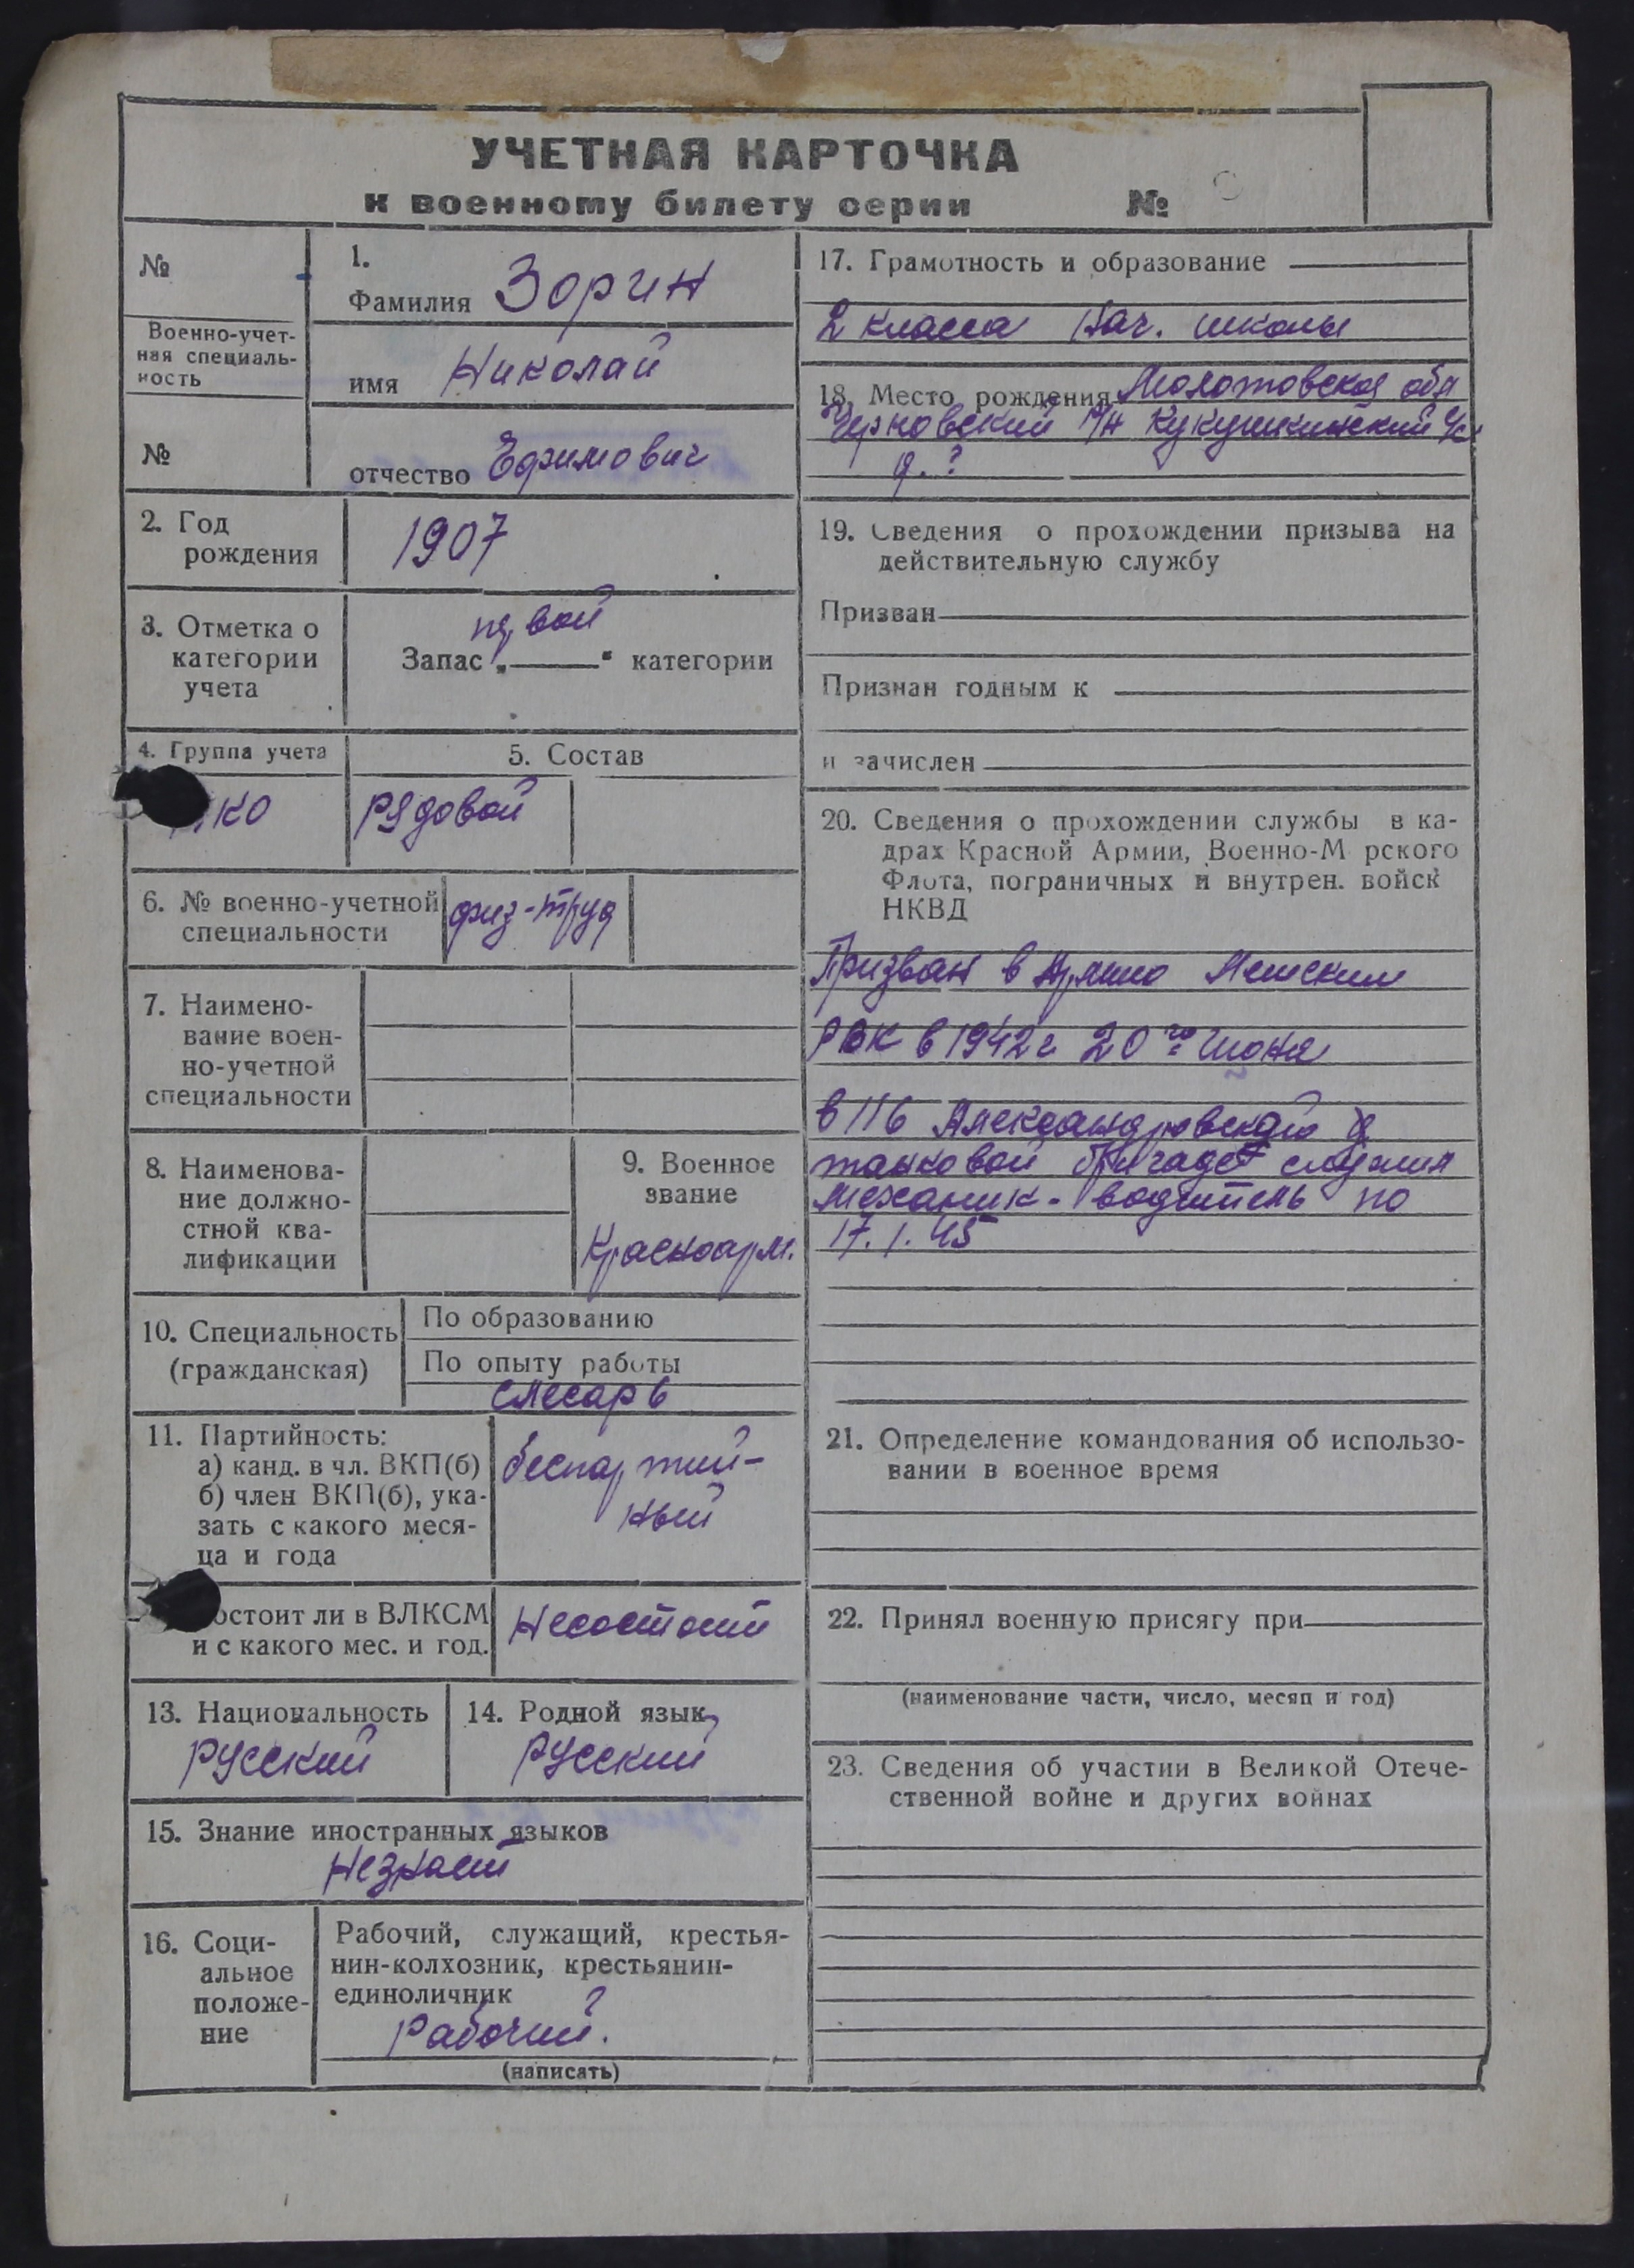 УЧЕТНАЯ КАРТОЧКА
к военному билету серии №
№
Военно-учет-
ная специаль-
ность
№
1.
Фамилия Зорин
имя Николай
отчество Ефимович
2. Год
рождения
1907
3. Отметка о
категории
учета
первой
Запас „ “ категории
4. Группа учета
КО
5. Состав
Рядовой
6. № военно-учетной
специальности
физ-труд
7. Наимено-
вание воен-
но-учетной
специальности
8. Наименова-
ние должно-
стной ква-
лификации
9. Военное
звание
Красноарм.
10. Специальность
(гражданская)
По образованию
По опыту работы
слесарь
11. Партийность:
а) канд. в чл. ВКП(б)
б) член ВКП(б), ука-
зать с какого меся-
ца и года
беспартий-
ный
остоит ли в ВЛКСМ
и с какого мес. и год.
Несостоит
13. Национальность
Русский
14. Родной язык
Русский
15. Знание иностранных языков
Незнает
16. Соци-
альное
положе-
ние
Рабочий, служащий, крестья-
нин-колхозник, крестьянин-
единоличник
Рабочий.
(написать)
17. Грамотность и образование
2 класса Нач. школы
18. Место рождения Молотовская обл
Черновский р/н Кукушкинский с/с
д. ?
19. Сведения о прохождении призыва на
действительную службу
Призван
Признан годным к
и зачислен
20. Сведения о прохождении службы в ка-
драх Красной Армии, Военно-М рского
Флота, пограничных и внутрен. войск
НКВД
Призван в Армию
РВК в 1942г 20го Июня
в 116 Александровской
танковой бригаде служил
Механик-водитель по
17.1.45
21. Определение командования об использо-
вании в военное время
22. Принял военную присягу при
(наименование части, число, месяц и год)
23. Сведения об участии в Великой Отече-
ственной войне и других войнах